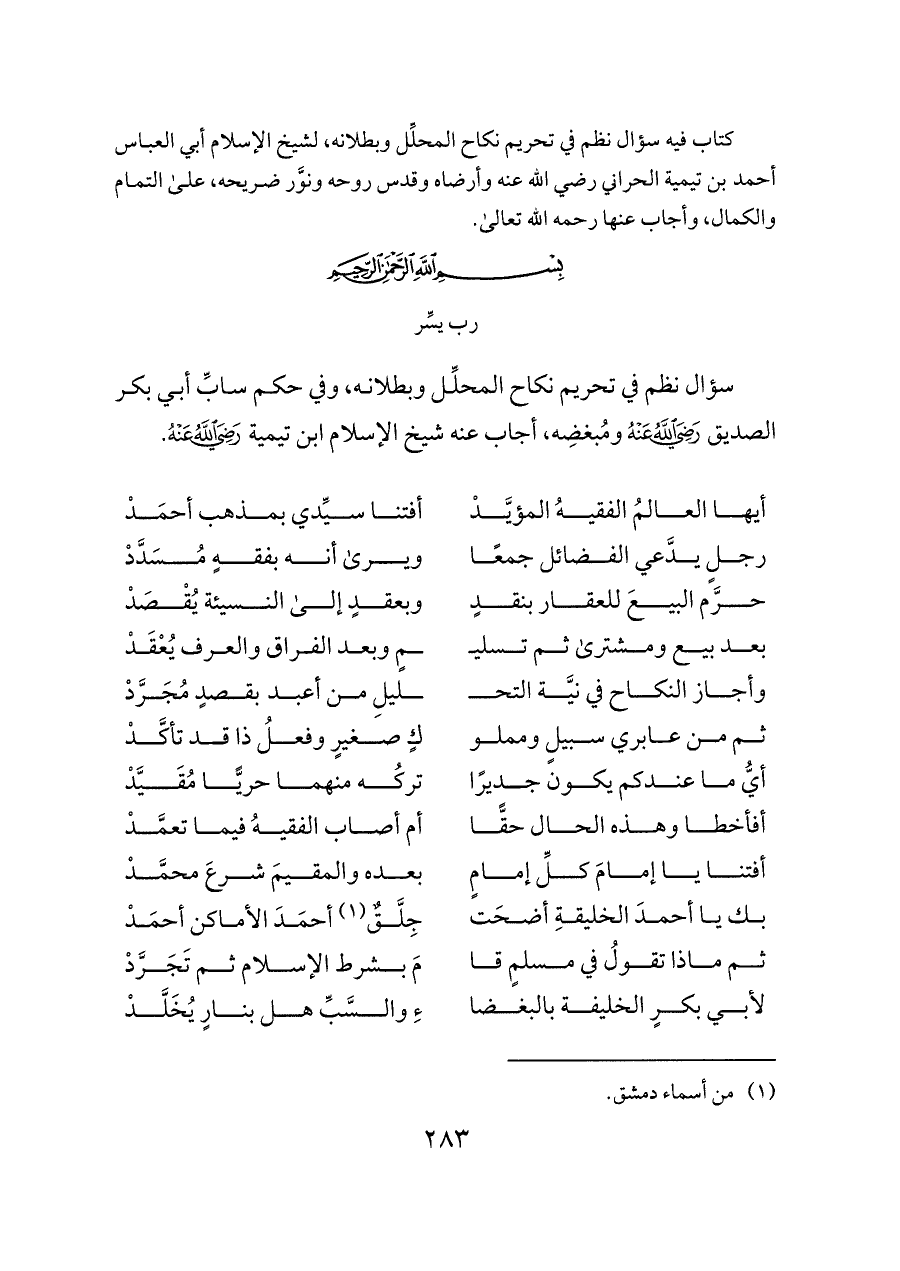 كتاب فيه سؤال نظم في تحريم نكاح المحلِّل وبطلانه، لشيخ الإسلام أبي العباس
أحمد بن تيمية الحراني رضي الله عنه وأرضاه وقدس روحه ونوَّر ضريحه، علىٰ التمام
والكمال، وأجاب عنها رحمه الله تعالىٰ.
بِسْمِ اللَّهِ الرَّحْمَٰنِ الرَّحِيمِ
رب يسِّر
سؤال نظم في تحريم نكاح المحلِّل وبطلانه، وفي حكم سابِّ أبي بكر
الصديق رَضِيَ اللَّهُ عَنْهُ ومُبغضِه، أجاب عنه شيخ الإسلام ابن تيمية رَضِيَ اللَّهُ عَنْهُ.
أيها العالمُ الفقيهُ المؤيَّدْ أفتنا سيِّدي بمذهب أحمَدْ
رجلٍ يدَّعي الفضائل جمعًا ويرىٰ أنه بفقهٍ مُسَدَّدْ
حرَّم البيعَ للعقار بنقدٍ وبعقدٍ إلىٰ النسيئة يُقْصَدْ
بعد بيع ومشترىٰ ثم تسليـ ـمٍ وبعد الفراق والعرف يُعْقَدْ
وأجاز النكاح في نيَّة التحـ ـليلِ من أعبد بقصدٍ مُجَرَّدْ
ثم من عابري سبيلٍ ومملو كٍ صغيرٍ وفعلُ ذا قد تأكَّدْ
أيُّ ما عندكم يكون جديرًا تركُه منهما حريًّا مُقَيَّدْ
أفأخطا وهذه الحال حقًّا أم أصاب الفقيهُ فيما تعمَّدْ
أفتنا يا إمامَ كلِّ إمامٍ بعده والمقيمَ شرعَ محمَّدْ
بك يا أحمدَ الخليقةِ أضحَت جِلَّقٌ(١) أحمَدَ الأماكن أحمَدْ
ثم ماذا تقولُ في مسلمٍ قا مَ بشرط الإسلام ثم تَجَرَّدْ
لأبي بكرٍ الخليفة بالبغضا ءِ والسَّبِّ هل بنارٍ يُخَلَّدْ
(١) من أسماء دمشق.
٢٨٣